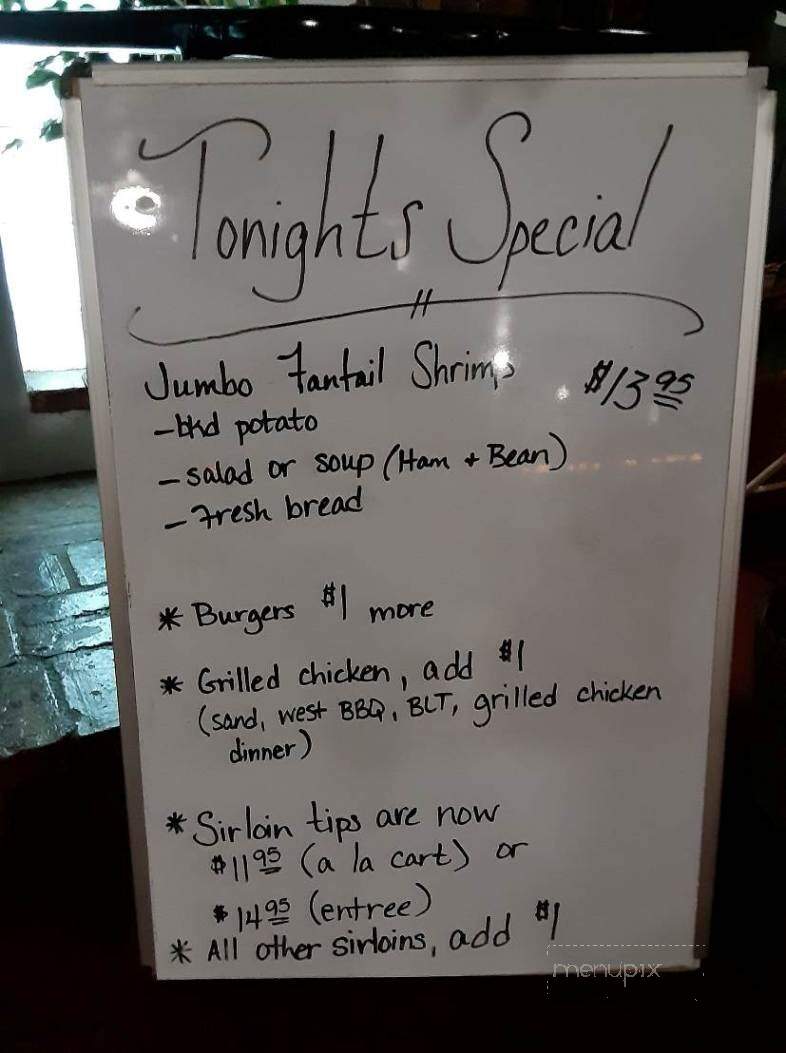 Tonights Special
Jumbo Fantail Shrimp $13.95
-bkd potato
-salad or soup (Ham + Bean)
-Fresh bread
* Burgers $1 more
* Grilled chicken, add $1
(sand, west BBQ, BLT, grilled chicken
dinner)
* Sirloin tips are now
$11.95 (a la cart) or
$14.95 (entree)
* All other sirloins, add $1
menupix